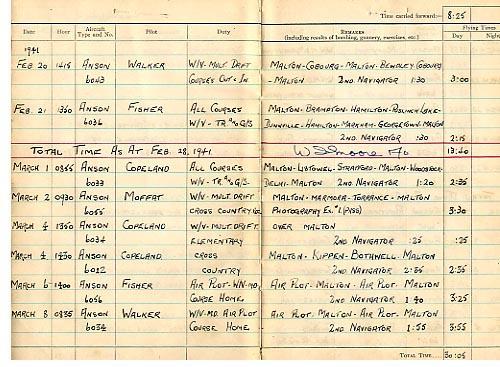 Time carried forward:- 8:25
Date Hour Aircraft Type and No. Pilot Duty REMARKS Flying Times
(including results of bombing, gunnery, exercises, etc.) Day Night
1941
FEB. 20 1415 ANSON WALKER W/V- MULT DRIFT MALTON-COBOURG-MALTON-BENDLEY COBOURG
6043 COURSES OUT & IN -MALTON 2ND NAVIGATOR 1:30 3:00
FEB. 21 ANSON FISHER ALL COURSES MALTON-BRAMPTON-HAMILTON-
6036 W/V- TR. G/S DUNNVILLE-HAMILTON-MARKHAM-GEORGETOWN-MALTON
2ND NAVIGATOR :30 2:15
TOTAL TIME AS AT FEB. 28, 1941. 13:40
MARCH 1 0855 ANSON COPELAND ALL COURSES MALTON-LISTOWEL-STRATFORD-MALTON-WOODSTOCK-
6033 W/V- TR. G/S- DELHI-MALTON 2ND NAVIGATOR 1:20 2:35
MARCH 2 0930 ANSON MOFFAT W/V-MULT DRIFT MALTON-MARMORA-TORRANCE-MALTON
6055 CROSS COUNTRY PHOTOGRAPHY EX. #1 3:30
MARCH 4 ANSON COPELAND W/V-MULT. DRIFT. OVER MALTON
6034 ELEMENTARY 2ND NAVIGATOR :25 :25
MARCH 4 1430 ANSON COPELAND CROSS MALTON-KIPPEN-BOTHWELL-MALTON
6012 COUNTRY 2ND NAVIGATOR 2:55 2:55
MARCH 6 1400 ANSON FISHER AIR PLOT-W/V-MD. AIR PLOT-MALTON-AIR PLOT-MALTON
6056 COURSE HOME. 2ND NAVIGATOR 1:40 3:25
MARCH 8 0835 ANSON WALKER W/V-MD. AIR PLOT AIR PLOT-MALTON-AIR PLOT-MALTON
6034 COURSE HOME 2ND NAVIGATOR 1:55 3:55
TOTAL TIME 30:05